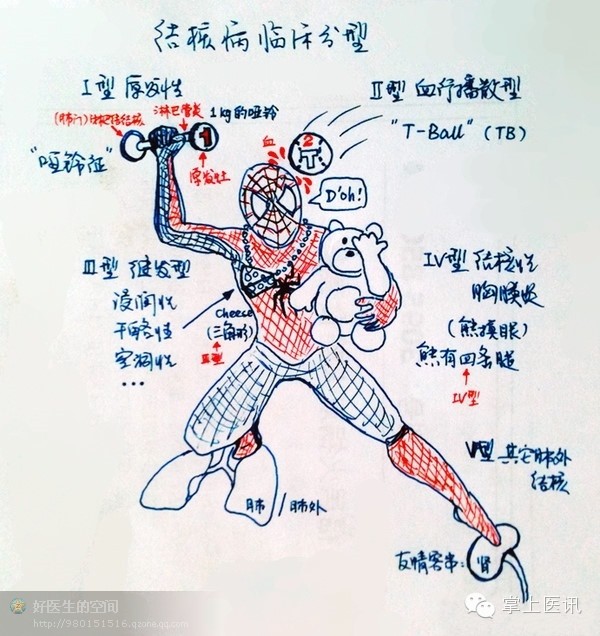 结核病临床分型
I型 原发性
(肺门)淋巴结结核
淋巴管炎
1kg的哑铃
1
"哑铃征"
原发灶
II型 血行播散型
"T-Ball" (TB)
2
T
血
D'oh!
III型 继发型
浸润性
干酪性
空洞性
...
cheese
(三角形)
III型
IV型 结核性
胸膜炎
(熊摸眼)
熊有四条腿
IV型
V型 其它肺外
结核
肺 / 肺外
友情客串:
肾
好医生的空间
http://980151516.qzone.qq.com
掌上医讯